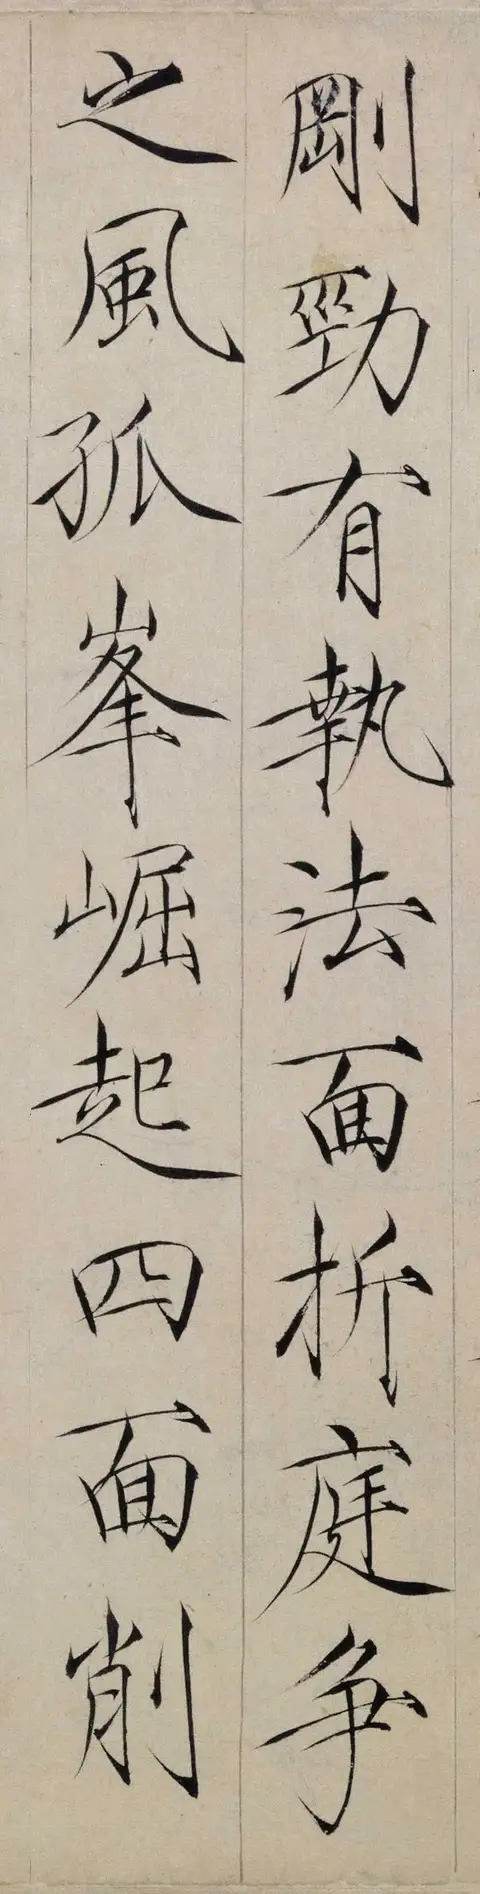 剛勁有執法面折庭争
之風孤峯崛起四面削